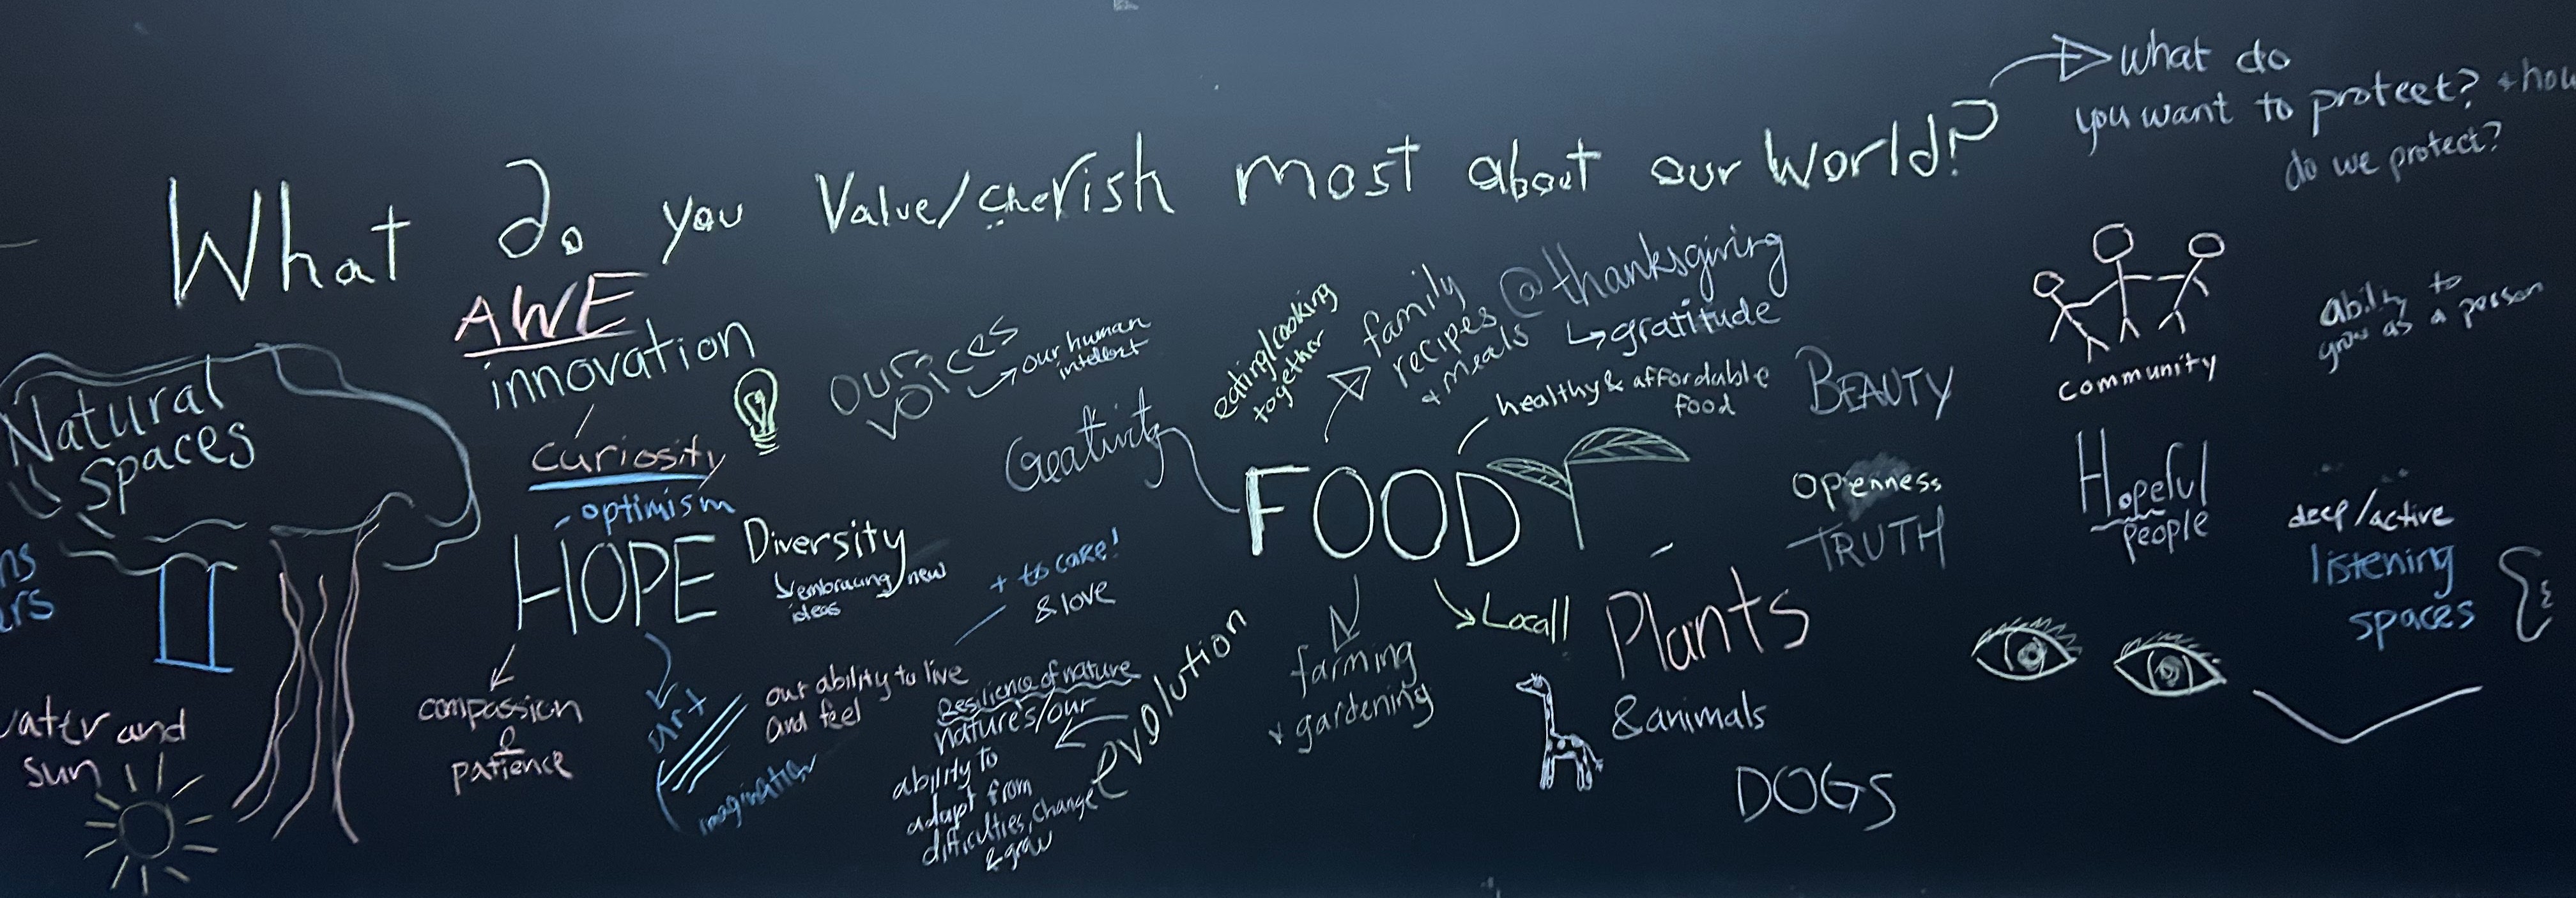 What do you Value/cherish most about our World?
What do
you want to protect? + how
do we protect?
AWE
innovation
curiosity
- optimism
HOPE
compassion
&
patience
art
imagination
Natural
Spaces
water and
sun
Diversity
embracing new
ideas
our
voices
our human
intellect
Creativity
eating/cooking
together
family
recipes
+ meals
@thanksgiving
gratitude
healthy & affordable
food
FOOD
Local!
farming
+ gardening
+ to care!
& love
our ability to live
and feel
Resilience of nature
natures/our
ability to
adapt from
difficulties, change
& grow
evolution
Plants
& animals
DOGS
BEAUTY
Openness
TRUTH
community
Hopeful
People
ability to
grow as a person
deep/active
listening
spaces